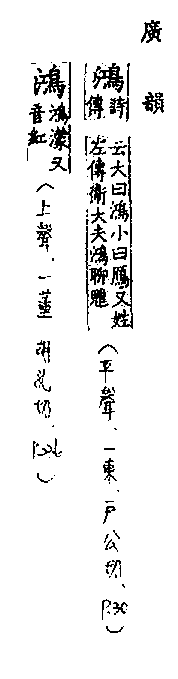 廣韻
鴻 詩傳 云大曰鴻小曰鴈又姓左傳衛大夫鴻聊魋 (平聲、一東、戶公切、P.30)
鴻 鴻濛又音紅 (上聲、一董 胡孔切、P.236)